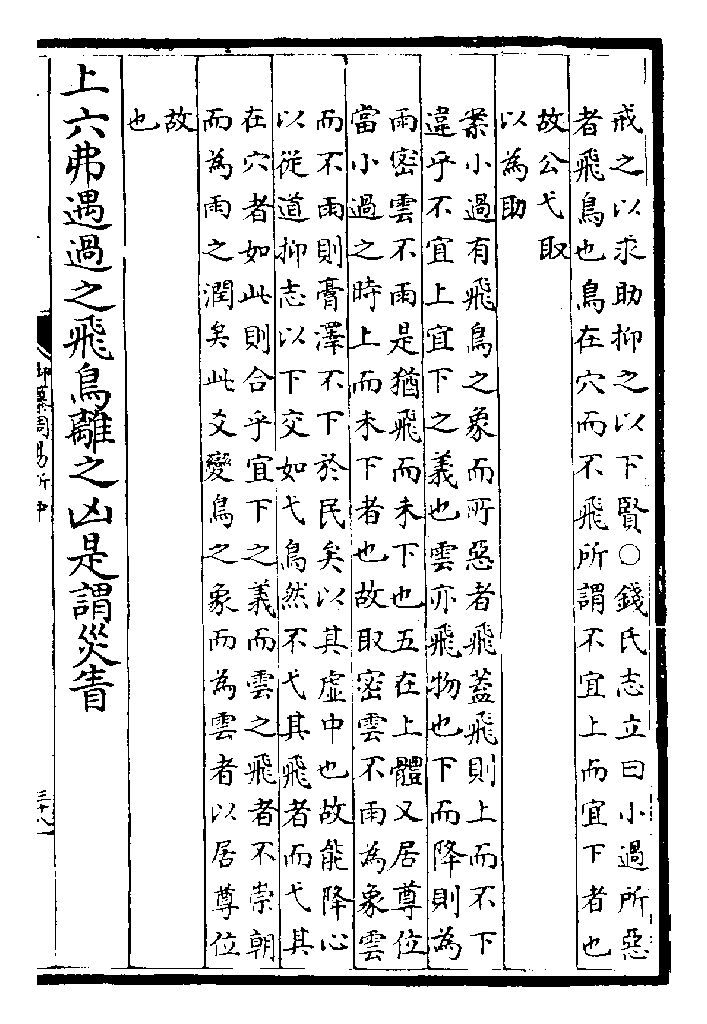 戒之以求助抑之以下賢○錢氏志立曰小過所惡
者飛鳥也鳥在穴而不飛所謂不宜上而宜下者也
故公弋取
以為助
案小過有飛鳥之象而所惡者飛蓋飛則上而不下
違乎不宜上宜下之義也雲亦飛物也下而降則為
雨密雲不雨是猶飛而未下也五在上體又居尊位
當小過之時上而未下者也故取密雲不雨為象雲
而不雨則膏澤不下於民矣以其虛中也故能降心
以從道抑志以下交如弋鳥然不弋其飛者而弋其
在穴者如此則合乎宜下之義而雲之飛者不崇朝
而為雨之潤矣此爻變鳥之象而為雲者以居尊位
故
也
上六弗遇過之飛鳥離之凶是謂災眚
御纂周易折中
三十八